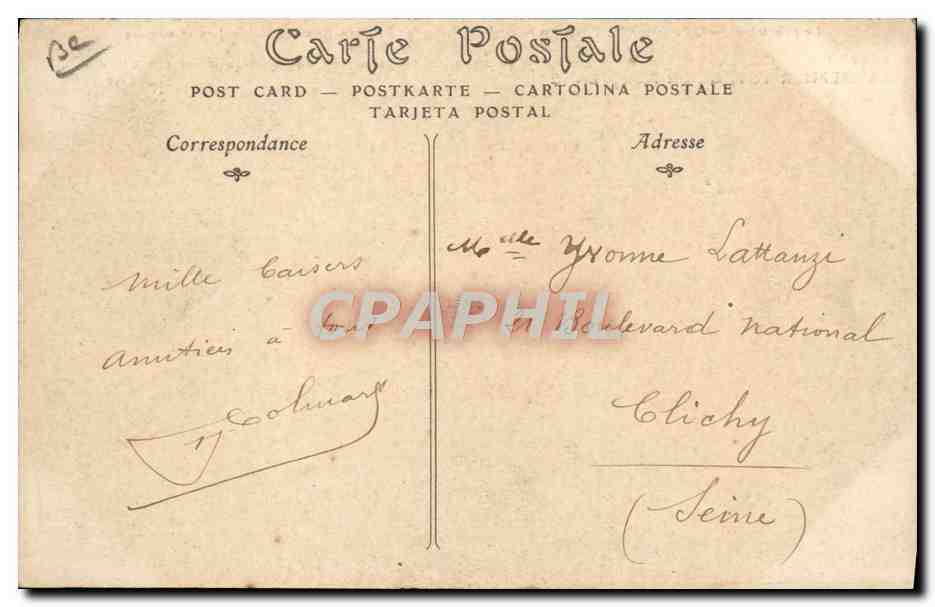 Be
Carte Postale
POST CARD — POSTKARTE — CARTOLINA POSTALE
TARJETA POSTAL
Correspondance
Mille baisers
Amitiés à tous
Colmard
Adresse
Mdlle Yvonne Lattanzi
Boulevard National
Clichy
(Seine)
CPAPHIL